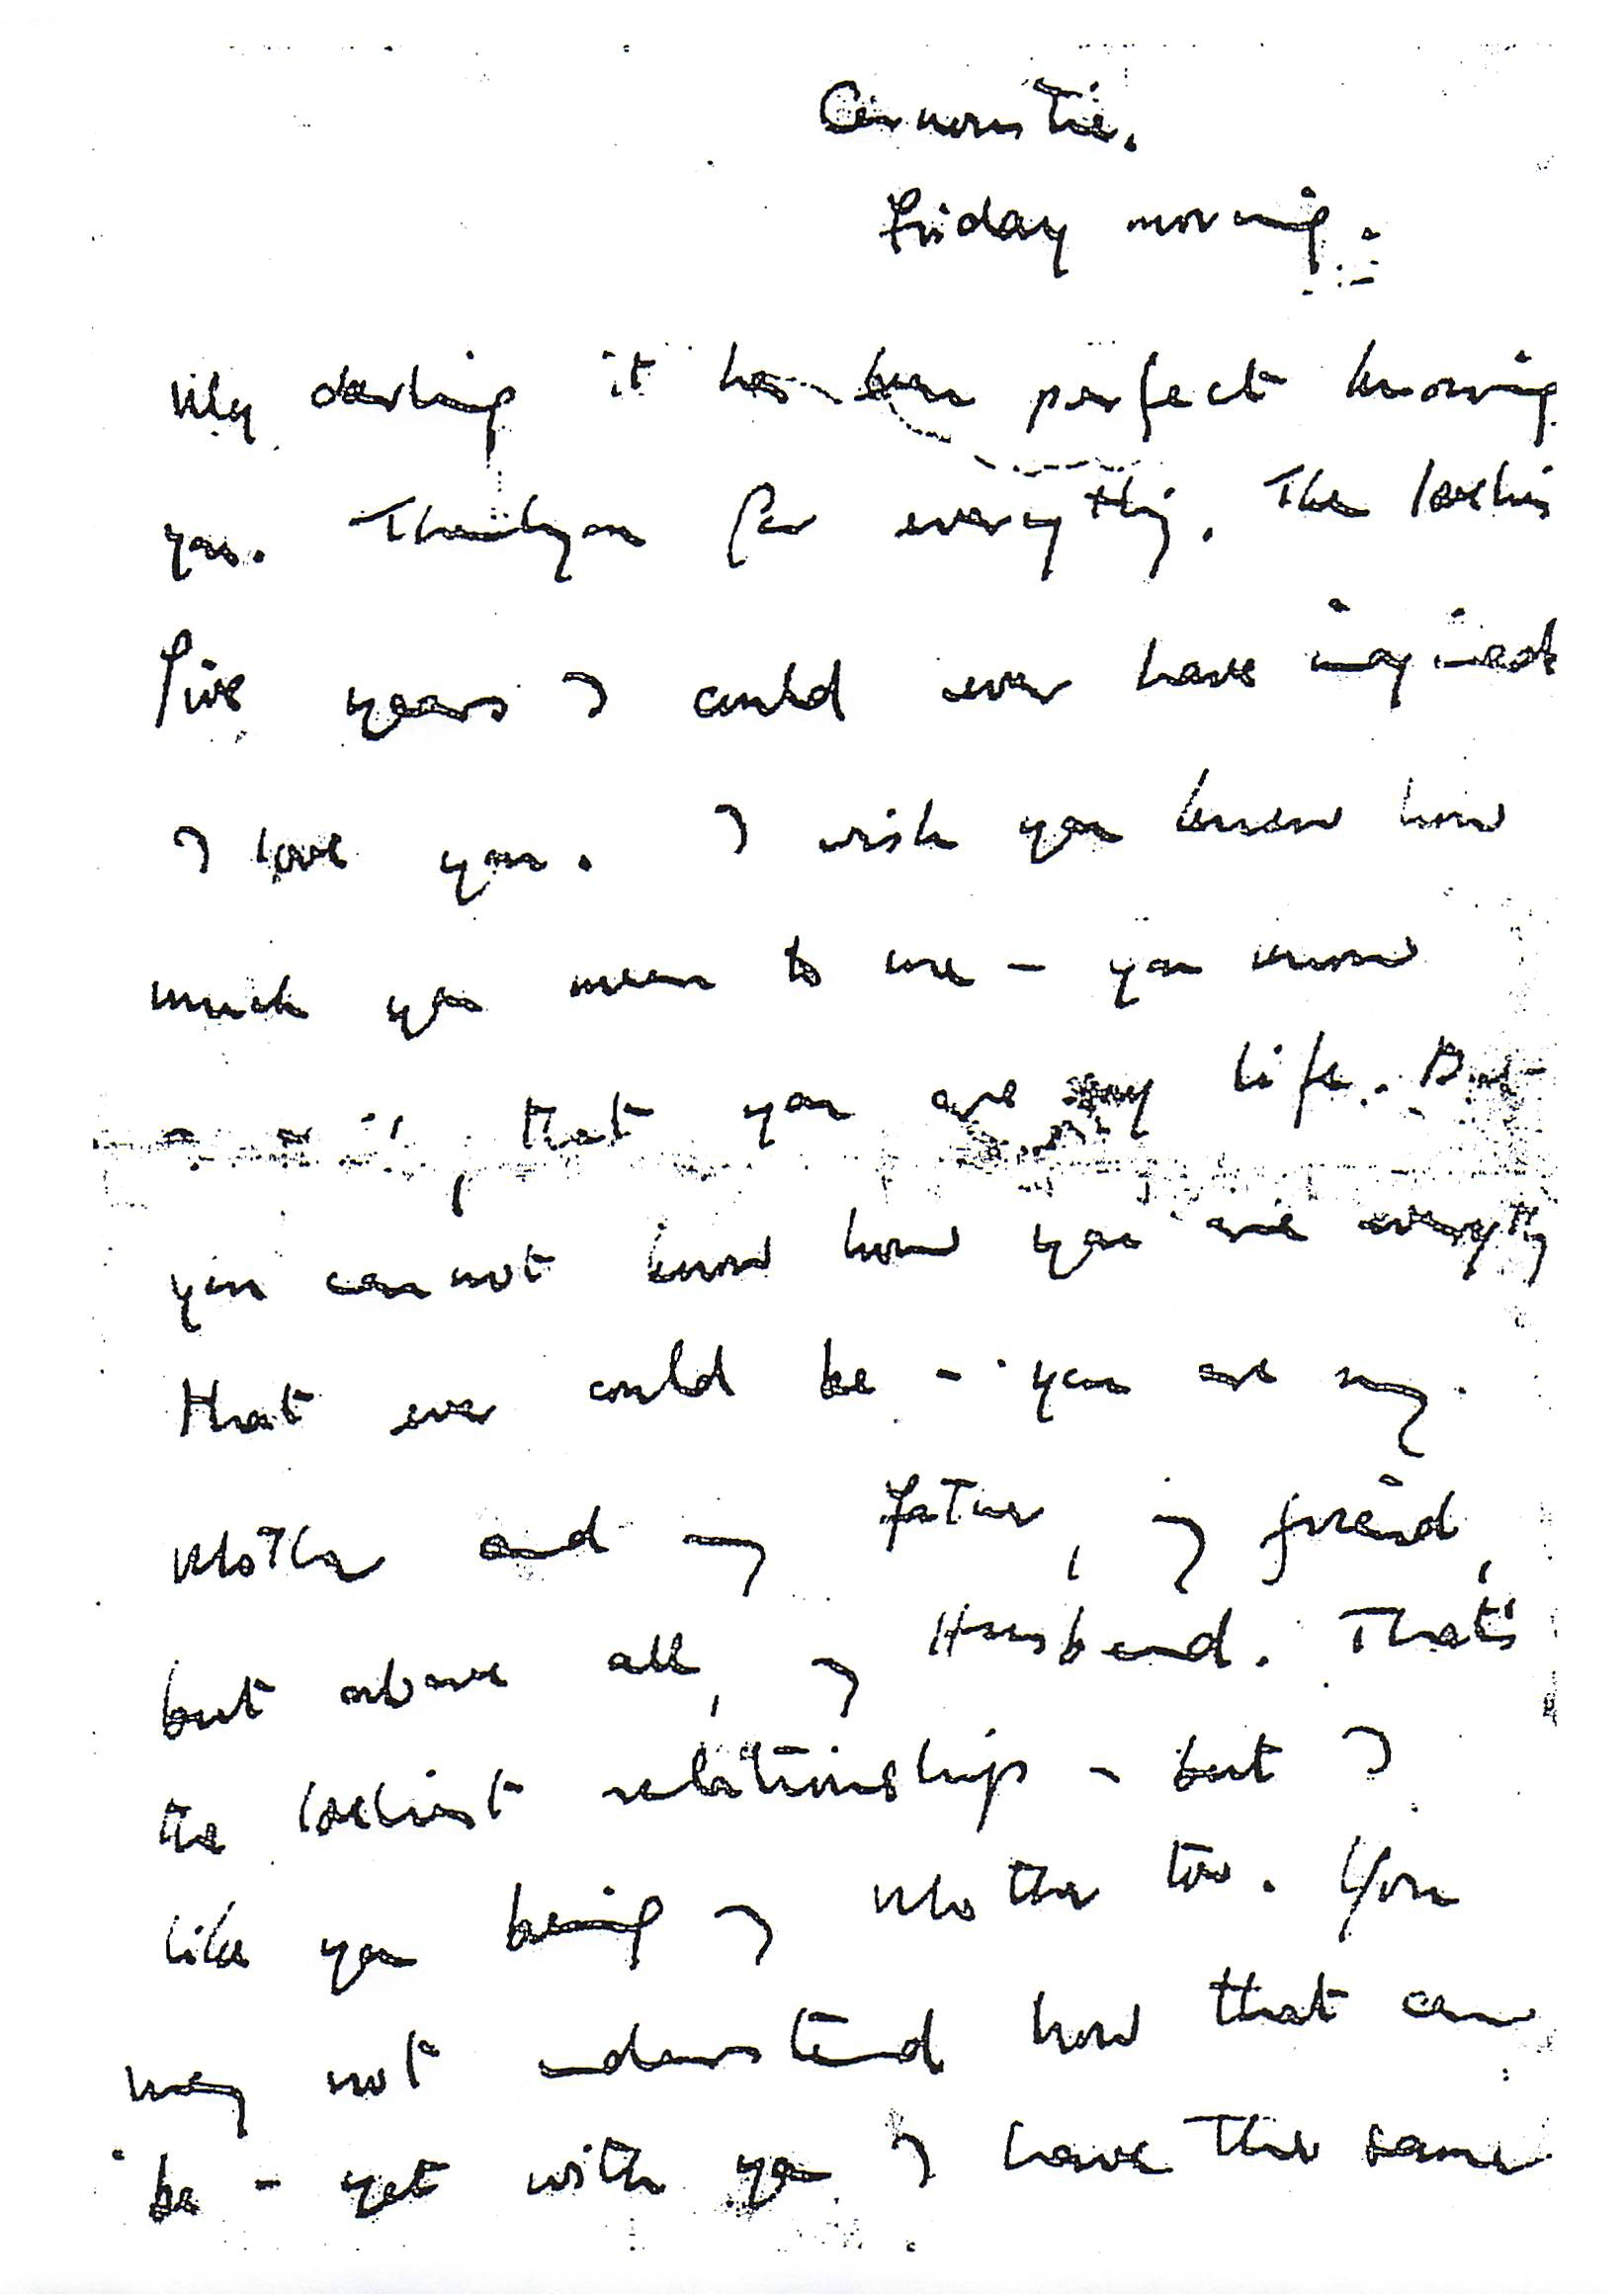 Carnoustie.
Friday morning.
My darling it has been perfect knowing
you. Thankyou for everything. The loveliest
five years I could ever have imagined
I love you. I wish you knew how
much you mean to me - you know
that you are my life. But
you cannot know how you are everything
that ever could be - you are my
Mother and my Father, my friend,
but above all, my Husband. That's
the loveliest relationship - but I
like you being my Mother too. You
may not understand how that can
be - yet with you I have the same